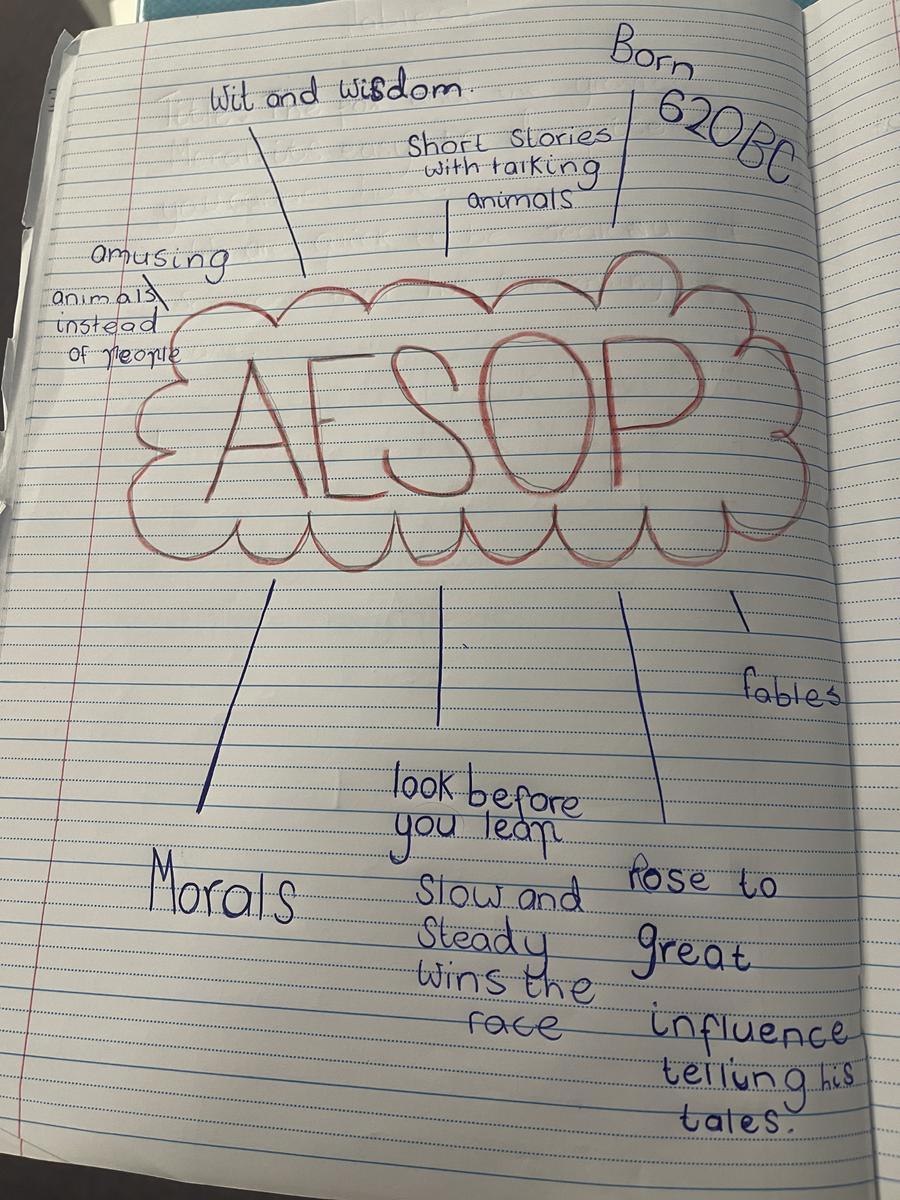 Born
620BC
Wit and wisdom.
Short Stories
with talking
animals
amusing
animals
instead
of people
AESOP
fables
look before
you leap
Slow and
Steady
Wins the
race
Morals
Rose to
great
influence
telling his
tales.